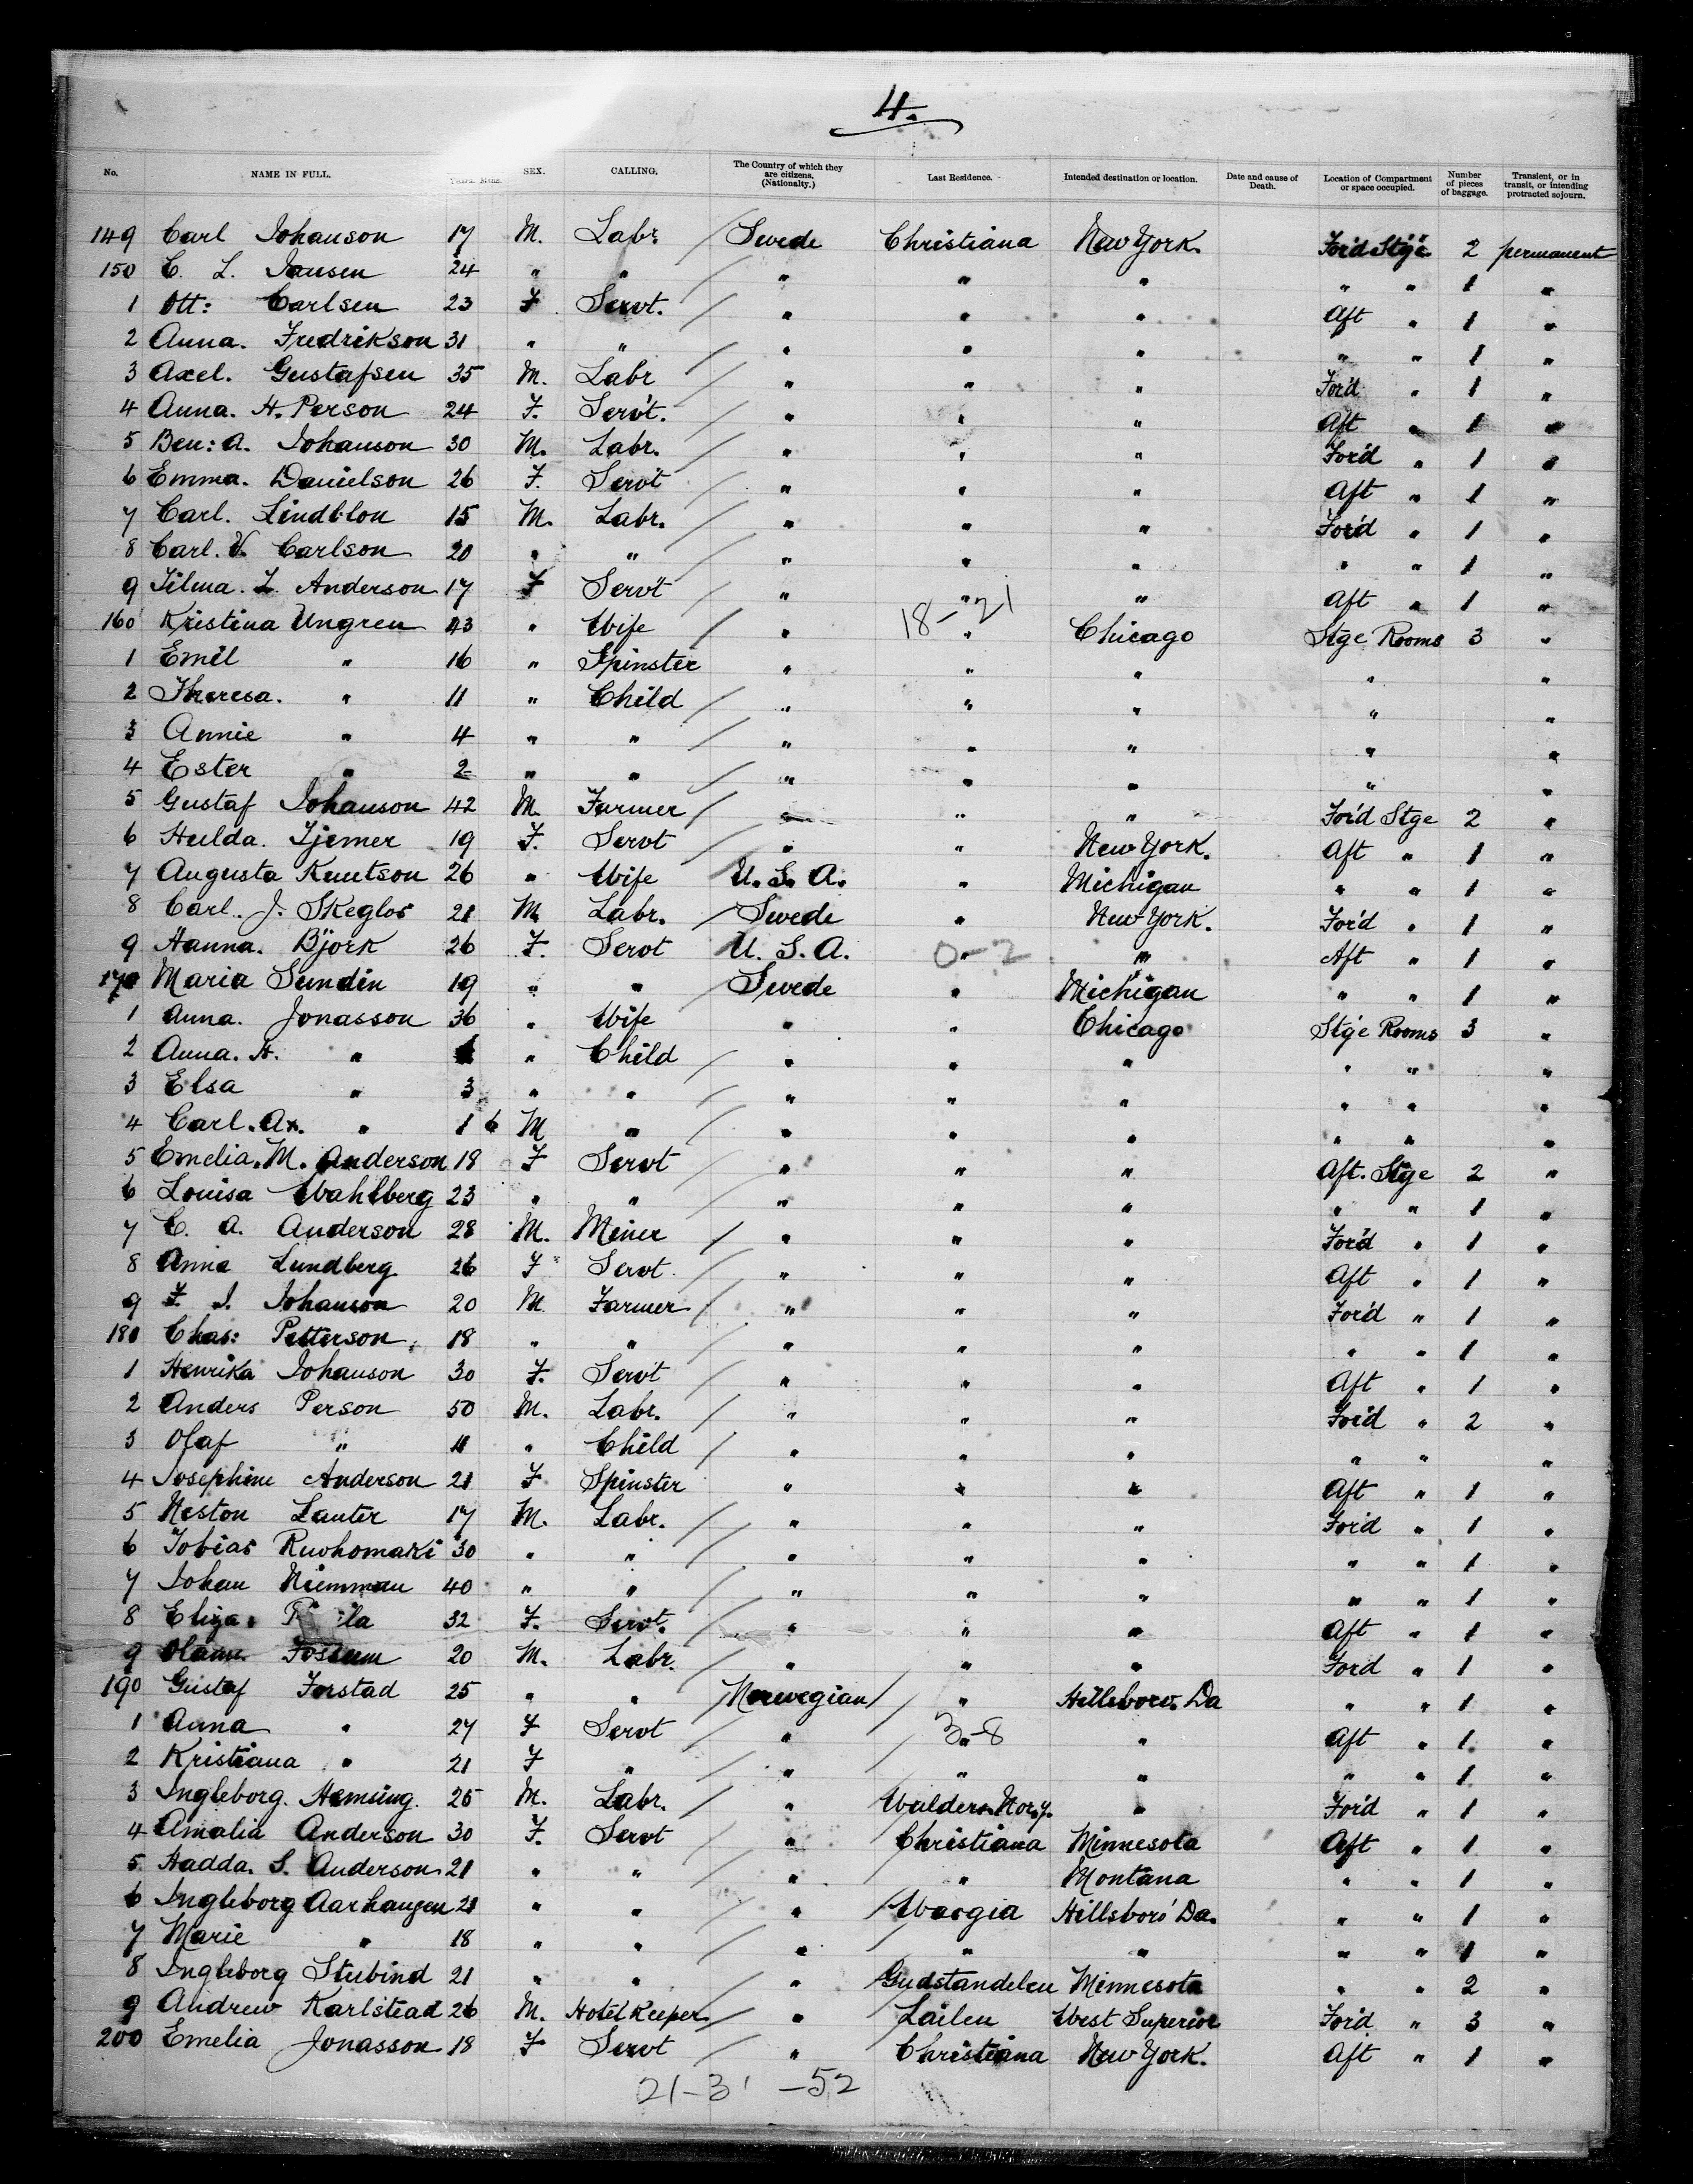 4.
No. NAME IN FULL. Years. Mths. SEX. CALLING. The Country of which they are citizens. (Nationalty.) Last Residence. Intended destination or location. Date and cause of Death. Location of Compartment or space occupied. Number of pieces of baggage. Transient, or in transit, or intending protracted sojourn.
149 Carl Johanson 17 M. Labr. / Swede Christiana New York. For'd Stge 2 permanent
150 C. L. Jansen 24 " " / " " " " " 1 "
1 Ott: Carlsen 23 F Servt. / " " " Aft " 1 "
2 Anna. Fredrikson 31 " " / " " " " " 1 "
3 Axel. Gustafsen 35 M. Labr / " " " For'd " 1 "
4 Anna. H. Person 24 F. Servt. / " " " Aft " 1 "
5 Ben: A. Johanson 30 M. Labr. / " " " For'd " 1 "
6 Emma. Danielson 26 F. Servt / " " " Aft " 1 "
7 Carl. Lindblon 15 M. Labr. / " " " For'd " 1 "
8 Carl. V. Carlson 20 " " / " " " " " 1 "
9 Tilma. L. Anderson 17 F Servt / " " " Aft " 1 "
18-21
160 Kristina Ungren 43 " Wife / " " Chicago Stge Rooms 3 "
1 Emil " 16 " Spinster " " " " "
2 Theresa. " 11 " Child / " " " " "
3 Annie " 4 " " / " " " " "
4 Ester " 2 " " / " " " " "
5 Gustaf Johanson 42 M. Farmer / " " " For'd Stge 2 "
6 Hulda. Tjemer 19 F. Servt / " " New York. Aft " 1 "
7 Augusta Knutson 26 " Wife U. S. A. " Michigan " " 1 "
8 Carl. J. Skeglos 21 M. Labr. / Swede " New York. For'd " 1 "
9 Hanna. Björk 26 F. Servt U. S. A. " " Aft " 1 "
0-2
170 Maria Sundin 19 " " / Swede " Michigan " " 1 "
1 Anna. Jonasson 36 " Wife " " Chicago Stge Rooms 3 "
2 Anna. H. " " Child / " " " " " "
3 Elsa " 3 " " / " " " " " "
4 Carl. Ax. " 1 6 M " / " " " " " "
5 Emelia. M. Anderson 18 F Servt / " " " Aft. Stge 2 "
6 Louisa Wahlberg 23 " " / " " " " " 1 "
7 C. A. Anderson 28 M. Miner / " " " For'd " 1 "
8 Anna Lundberg 26 F Servt / " " " Aft " 1 "
9 F. I. Johanson 20 M. Farmer / " " " For'd " 1 "
180 Chas: Petterson 18 " " / " " " " " 1 "
1 Henrika Johanson 30 F. Servt / " " " Aft " 1 "
2 Anders Person 50 M. Labr. / " " " For'd " 2 "
3 Olaf " 11 " Child / " " " " " "
4 Josephine Anderson 21 F Spinster " " " Aft " 1 "
5 Neston Lanter 17 M. Labr. / " " " For'd " 1 "
6 Tobias Ruohomaki 30 " " / " " " " " 1 "
7 Johan Niemman 40 " " / " " " " " 1 "
8 Eliza 32 F. Servt. / " " " Aft " 1 "
9 Fossum 20 M. Labr. / " " " For'd " 1 "
190 Gustaf Forstad 25 " " / Norwegian / " Hillsboro. Da " " 1 "
1 Anna " 27 F Servt / " " " Aft " 1 "
3-8
2 Kristiana " 21 F " / " " " " " 1 "
3 Ingleborg. Hemsing. 25 M. Labr. / " Walders. Nor.y. " For'd " 1 "
4 Amalia Anderson 30 F. Servt / " Christiana Minnesota Aft " 1 "
5 Hadda. S. Anderson 21 " " / " " Montana " " 1 "
6 Ingleborg Aarhaugen 21 " " / " Waogia Hillsboro' Da. " " 1 "
7 Marie " 18 " " / " " " " " 1 "
8 Ingleborg Stubind 21 " " / " Gudstandelen Minnesota " " 2 "
9 Andrew Karlstead 26 M. Hotel Keeper / " Lailen West Superior For'd " 3 "
200 Emelia Jonasson 18 F Servt / " Christiana New York. Aft " 1 "
21-31 -52